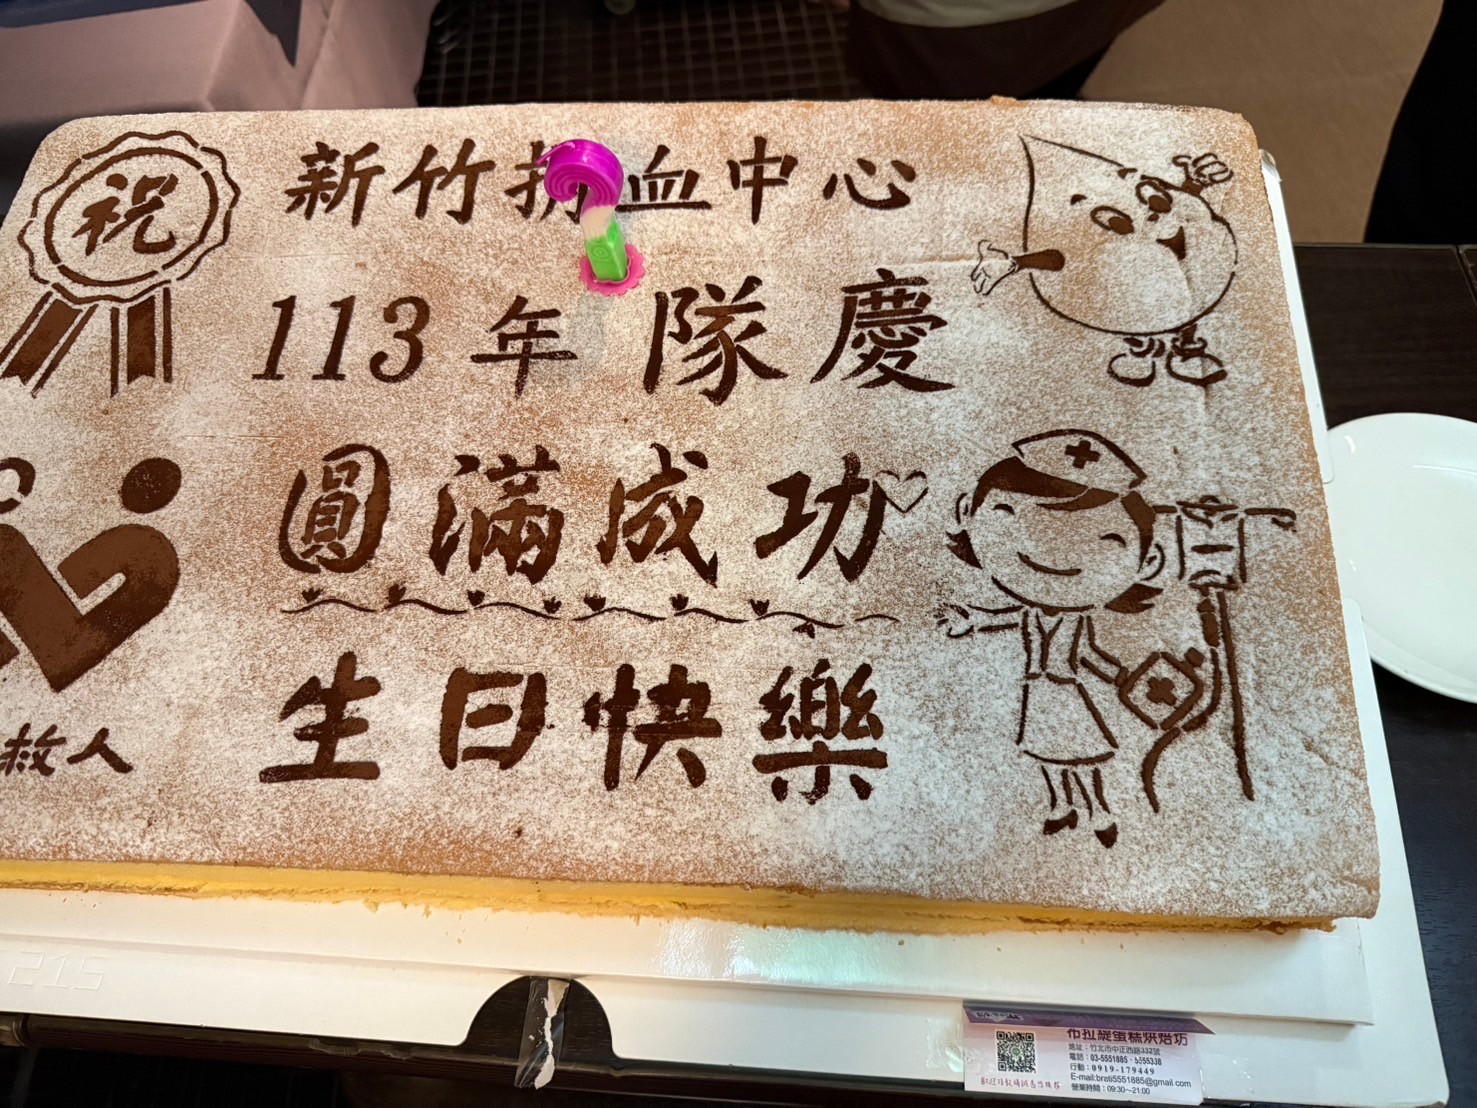 祝
新竹捐血中心
113年 隊慶
圓滿成功
生日快樂
救人
215
布拉緹蛋糕烘焙坊
地址：竹北市中正西路332號
電話：03-5551885、5555338
行動：0919-179449
E-mail:brati5551885@gmail.com
營業時間：09:30~21:00